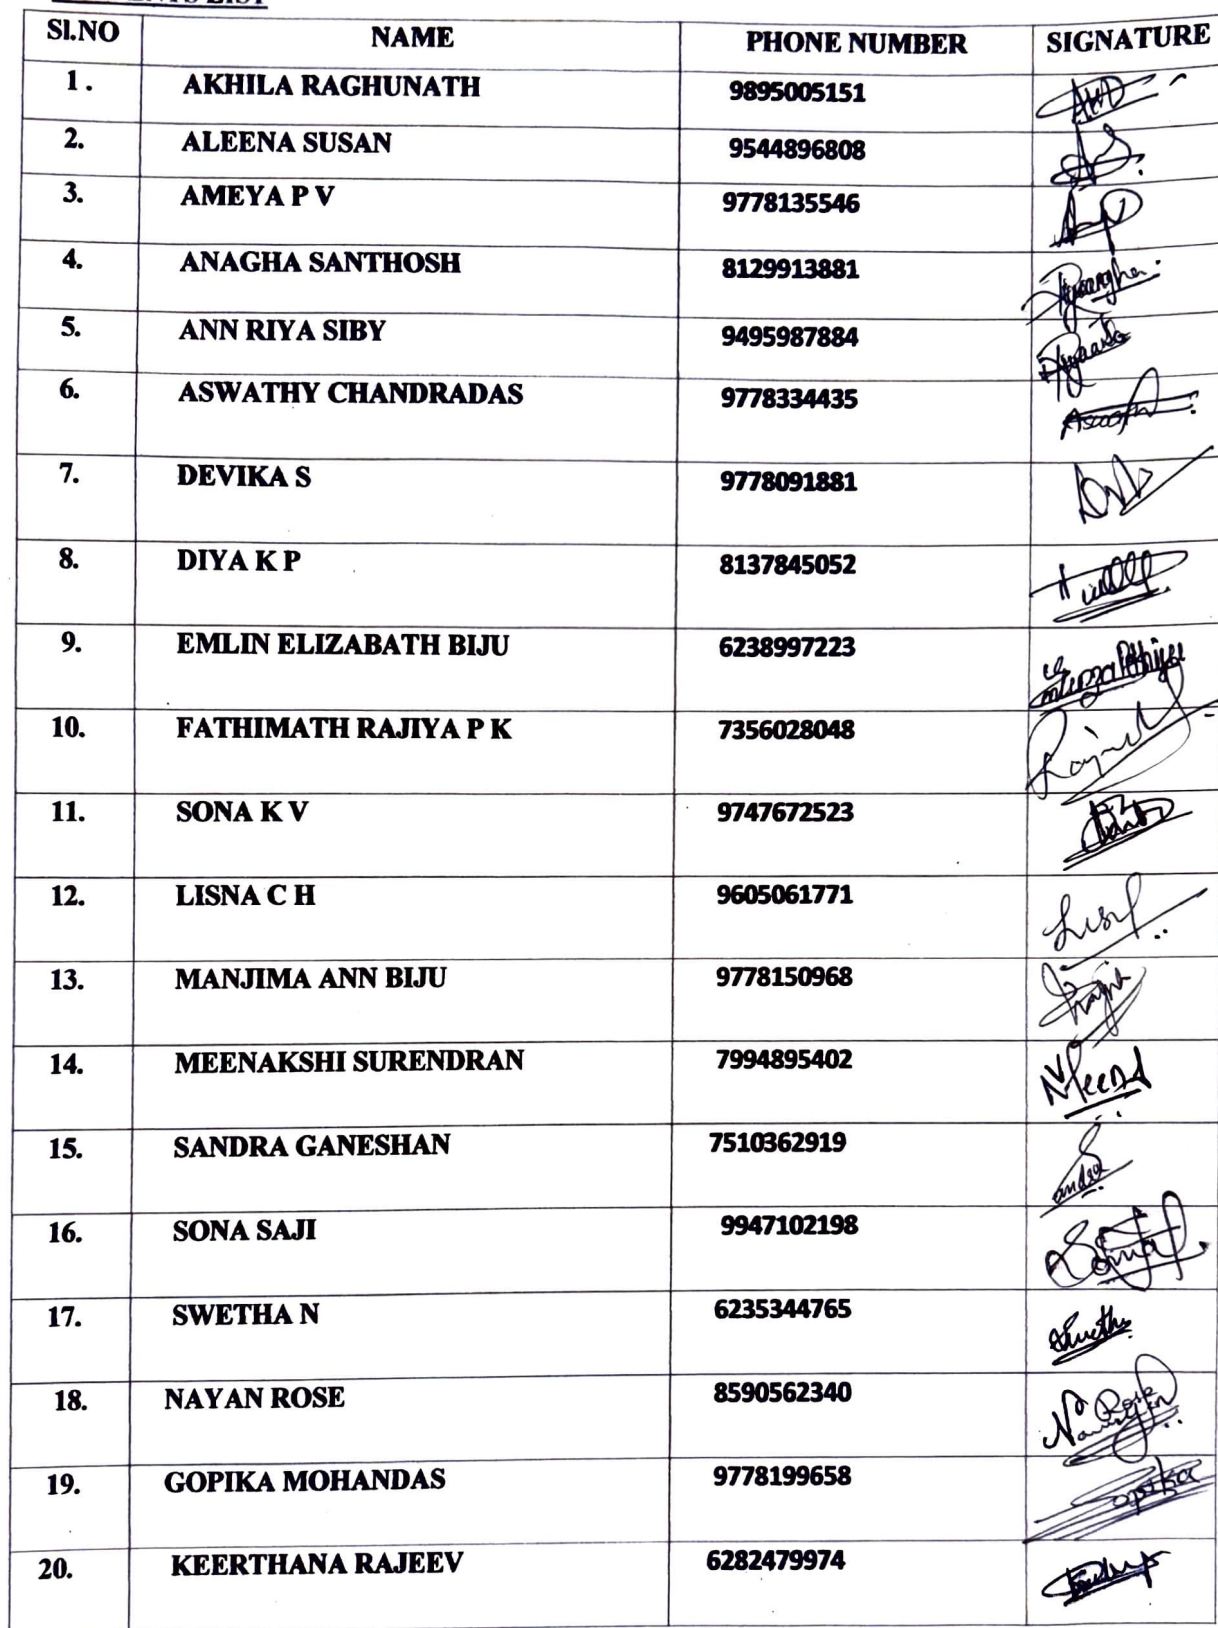 LIST
SI.NO NAME PHONE NUMBER SIGNATURE
1. AKHILA RAGHUNATH 9895005151
2. ALEENA SUSAN 9544896808 AS
3. AMEYA P V 9778135546
4. ANAGHA SANTHOSH 8129913881
5. ANN RIYA SIBY 9495987884
6. ASWATHY CHANDRADAS 9778334435
7. DEVIKA S 9778091881
8. DIYA K P 8137845052
9. EMLIN ELIZABATH BIJU 6238997223
10. FATHIMATH RAJIYA P K 7356028048
11. SONA K V 9747672523
12. LISNA C H 9605061771
13. MANJIMA ANN BIJU 9778150968
14. MEENAKSHI SURENDRAN 7994895402
15. SANDRA GANESHAN 7510362919 Sandra
16. SONA SAJI 9947102198
17. SWETHA N 6235344765
18. NAYAN ROSE 8590562340
19. GOPIKA MOHANDAS 9778199658 Gopika
20. KEERTHANA RAJEEV 6282479974